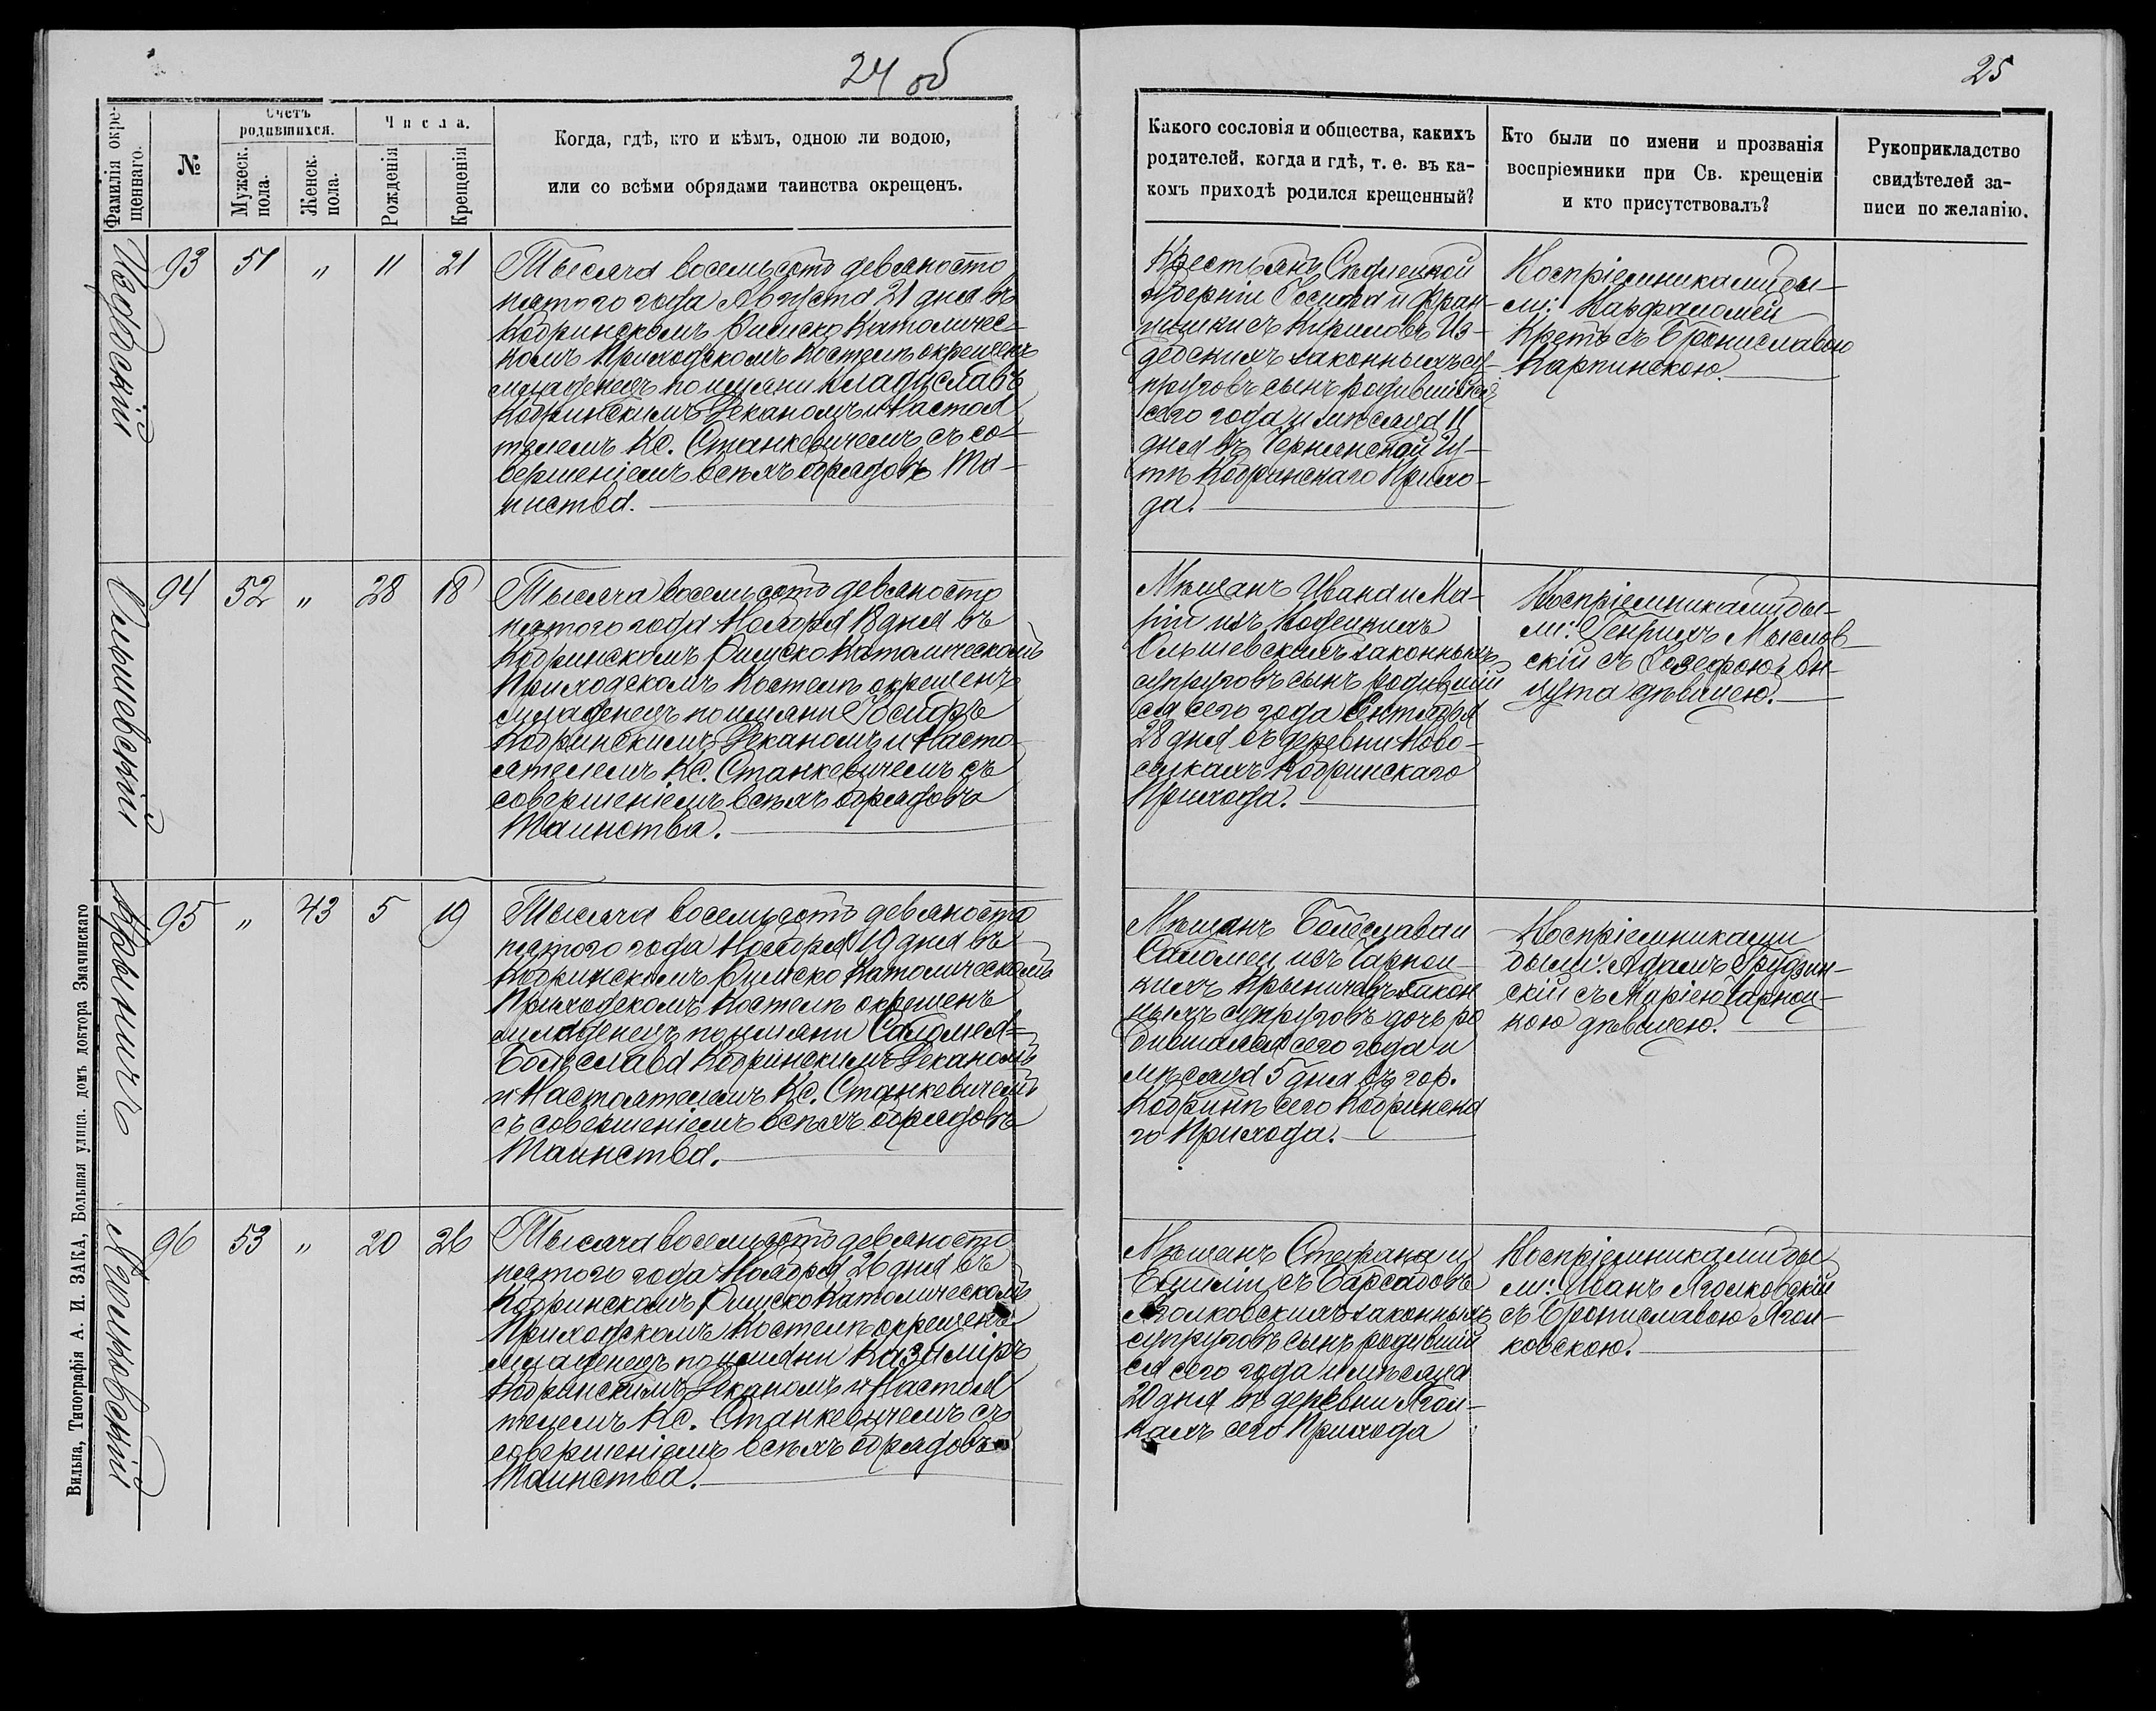 24 об
25
Фамилія окре-
щеннаго.
№
Счетъ
родившихся.
Мужеск.
пола.
Женск.
пола.
Числа.
Рожденія
Крещенія
Когда, гдѣ, кто и кѣмъ, одною ли водою,
или со всѣми обрядами таинства окрещенъ.
Какого сословія и общества, какихъ
родителей, когда и гдѣ, т. е. въ ка-
комъ приходѣ родился крещенный?
Кто были по имени и прозванія
воспріемники при Св. крещеніи
и кто присутствовалъ?
Рукоприкладство
свидѣтелей за-
писи по желанію.
Издебскій
93 51 „ 11 21
Тысяча восемьсотъ девяносто
пятого года Августа 21 дня въ
Кобринскомъ Римско Католичес-
комъ Приходскомъ Костелѣ окрещенъ
младенецъ по имени Владиславъ
Кобринскимъ Деканомъ и Настоя
телемъ Кс. Станкевичемъ съ со-
вершеніемъ всѣхъ обрядовъ Та-
инства.
Крестьянъ Сѣдлецкой
губерніи Іосифа и Фран-
цишки съ Кириловъ Из-
дебскихъ законныхъ су-
пруговъ сынъ родившійся
сего года и мѣсяца 11
дня въ Чернянской Гу-
тѣ Кобринскаго Прихо-
да.
Воспріемниками бы-
ли: Варфаломей
Кретъ съ Брониславою
Карпинскою.
Ольшевскій
94 52 „ 28 18
Тысяча восемьсотъ девяносто
пятого года Ноября 18 дня въ
Кобринскомъ Римско Католическомъ
Приходскомъ Костелѣ окрещенъ
младенецъ по имени Іосифъ
Кобринскимъ Деканомъ и Насто-
ятелемъ Кс. Станкевичемъ съ
совершеніемъ всѣхъ обрядовъ
Таинства.
Мѣщанъ Ивана и Ма-
ріи изъ
Ольшевскихъ законныхъ
супруговъ сынъ родившій
ся сего года Сентября
28 дня въ деревни Ново-
селкахъ Кобринскаго
Прихода.
Воспріемниками бы-
ли: Генрихъ Мыслов-
скій съ Іозефою
дѣвицею.
Крыничъ
95 „ 43 5 19
Тысяча восемьсотъ девяносто
пятого года Ноября 19 дня въ
Кобринскомъ Римско Католическомъ
Приходскомъ Костелѣ окрещенъ
младенецъ по имени Саломея-
Болеслава Кобринскимъ Деканомъ
и Настоятелемъ Кс. Станкевичемъ
съ совершеніемъ всѣхъ обрядовъ
Таинства.
Мѣщанъ Болеслава и
Саломеи изъ Чарноц-
кихъ Крыничевъ закон
ныхъ супруговъ дочь ро
дившаяся сего года и
мѣсяца 5 дня въ гор.
Кобринѣ сего Кобринска
го Прихода.
Воспріемниками
были: Адамъ Грудзин-
скій съ Маріею Чарноц-
кою дѣвицею.
Яголковскій
96 53 „ 20 26
Тысяча восемьсотъ девяносто
пятого года Ноября 26 дня въ
Кобринскомъ Римско Католическомъ
Приходскомъ Костелѣ окрещенъ
младенецъ по имени Казиміръ
Кобринскимъ Деканомъ и Настоя
телемъ Кс. Станкевичемъ съ
совершеніемъ всѣхъ обрядовъ
Таинства.
Мѣщанъ Стефана и
Емиліи съ Барсабовъ
Яголковскихъ законныхъ
супруговъ сынъ родившій
ся сего года и мѣсяца
20 дня въ деревни Ягол-
кахъ сего Прихода
Воспріемниками бы
ли: Иванъ Яголковскій
съ Брониславою Ягол-
ковскою.
Вильна, Типографія А. И. ЗАКА, Большая улица. домъ доктора Змачинскаго